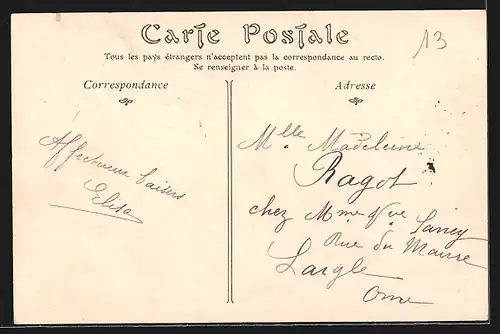 Carte Postale
13
Tous les pays étrangers n'acceptent pas la correspondance au recto.
Se renseigner à la poste.
Correspondance
Affectueux baisers
Elisa
Adresse
Mlle Madeleine
Ragot
chez Mme Vve
Rue du
Laigle
Orne